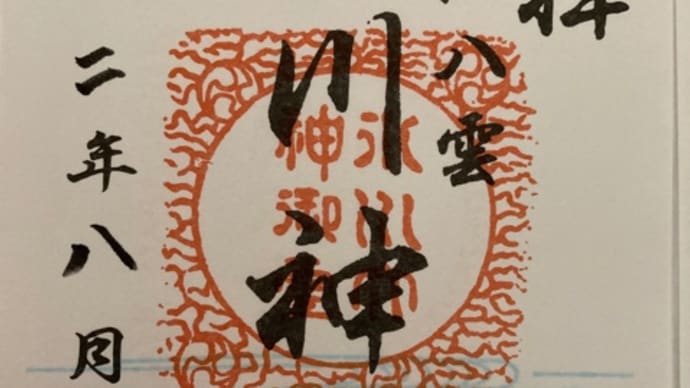 拝
八雲
川神
氷川
神御
二年八月